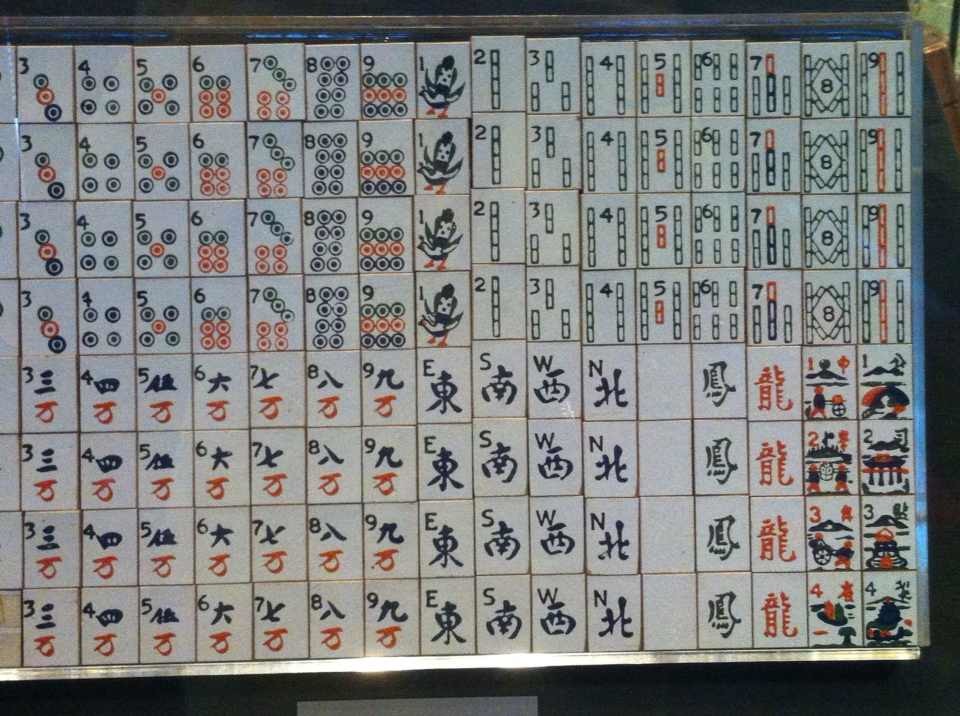 3 4 5 6 7 8 9 1 2 3 4 5 6 7 8 9
3 4 5 6 7 8 9 1 2 3 4 5 6 7 8 9
3 4 5 6 7 8 9 1 2 3 4 5 6 7 8 9
3 4 5 6 7 8 9 1 2 3 4 5 6 7 8 9
3三万 4四万 5伍万 6六万 7七万 8八万 9九万 E東 S南 W西 N北 鳳 龍 1中 1公
3三万 4四万 5伍万 6六万 7七万 8八万 9九万 E東 S南 W西 N北 鳳 龍 2 2司
3三万 4四万 5伍万 6六万 7七万 8八万 9九万 E東 S南 W西 N北 鳳 龍 3 3
3三万 4四万 5伍万 6六万 7七万 8八万 9九万 E東 S南 W西 N北 鳳 龍 4 4製